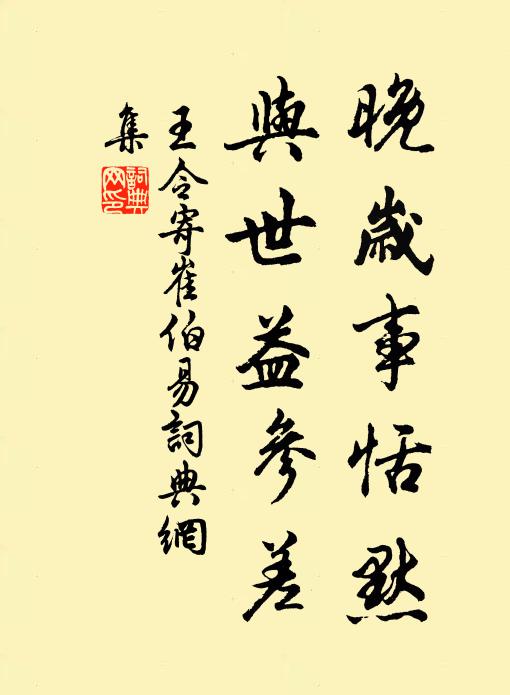 晚歲事恬默
與世益參差
王令寄崔伯易詞典網
集
詞典網印